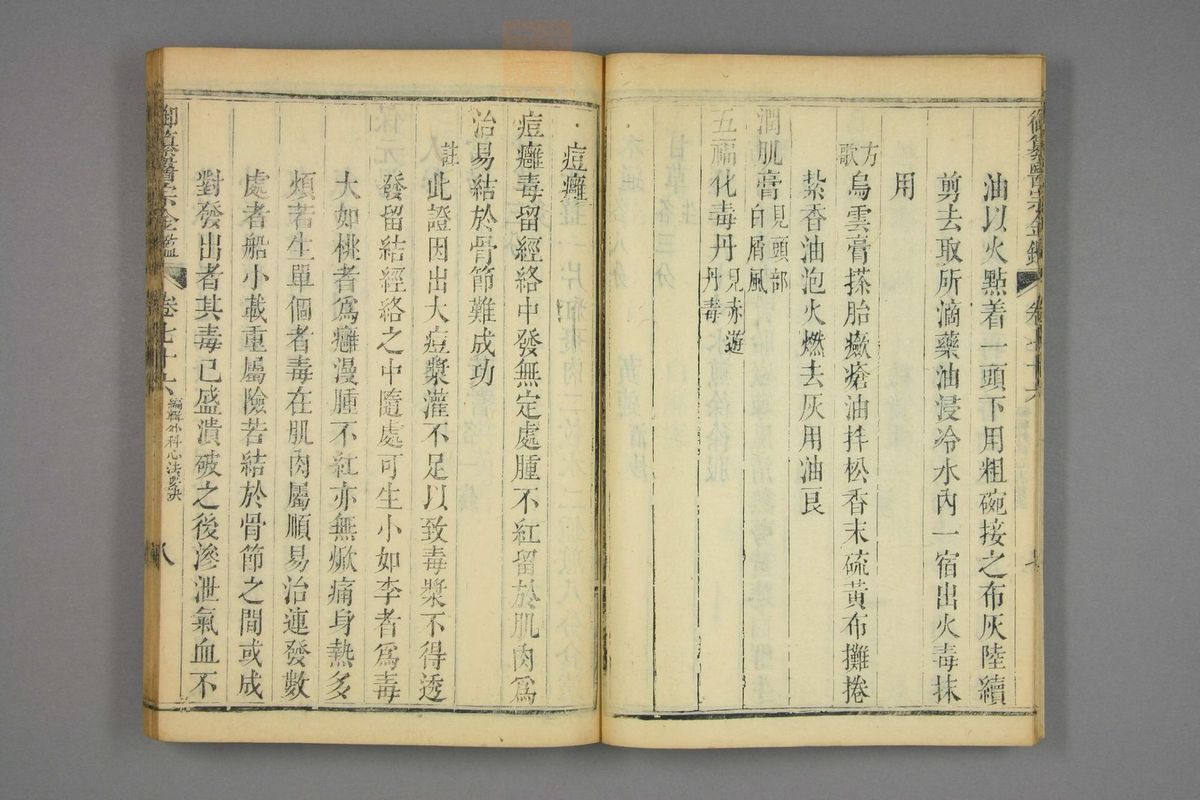 油以火點着一頭下用粗碗接之布灰陸續
剪去取所滴藥油浸冷水內一宿出火毒抹
用
方歌
烏雲膏搽胎㿔瘡油拌松香末硫黃布攤捲
紮香油泡火燃去灰用油良
潤肌膏見頭部白屑風
五福化毒丹見赤遊丹毒
御纂醫宗金鑑
卷七十六
編輯外科心法要訣
八
痘癰
痘癰毒留經絡中發無定處腫不紅留於肌肉爲
治易結於骨節難成功
註此證因出大痘漿灌不足以致毒漿不得透
發留結經絡之中隨處可生小如李者爲毒
大如桃者爲癰漫腫不紅亦無焮痛身熱多
煩若生單個者毒在肌肉屬順易治連發數
處者船小載重屬險若結於骨節之間或成
對發出者其毒已盛潰破之後滲泄氣血不